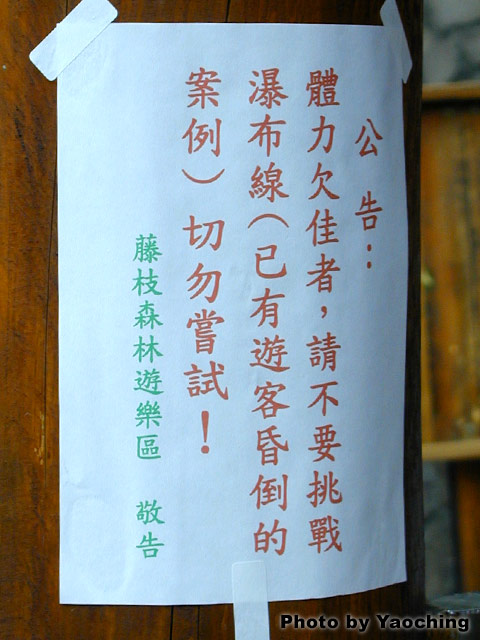 公告：
體力欠佳者，請不要挑戰
瀑布線（已有遊客昏倒的
案例）切勿嘗試！
藤枝森林遊樂區　敬告
Photo by Yaoching